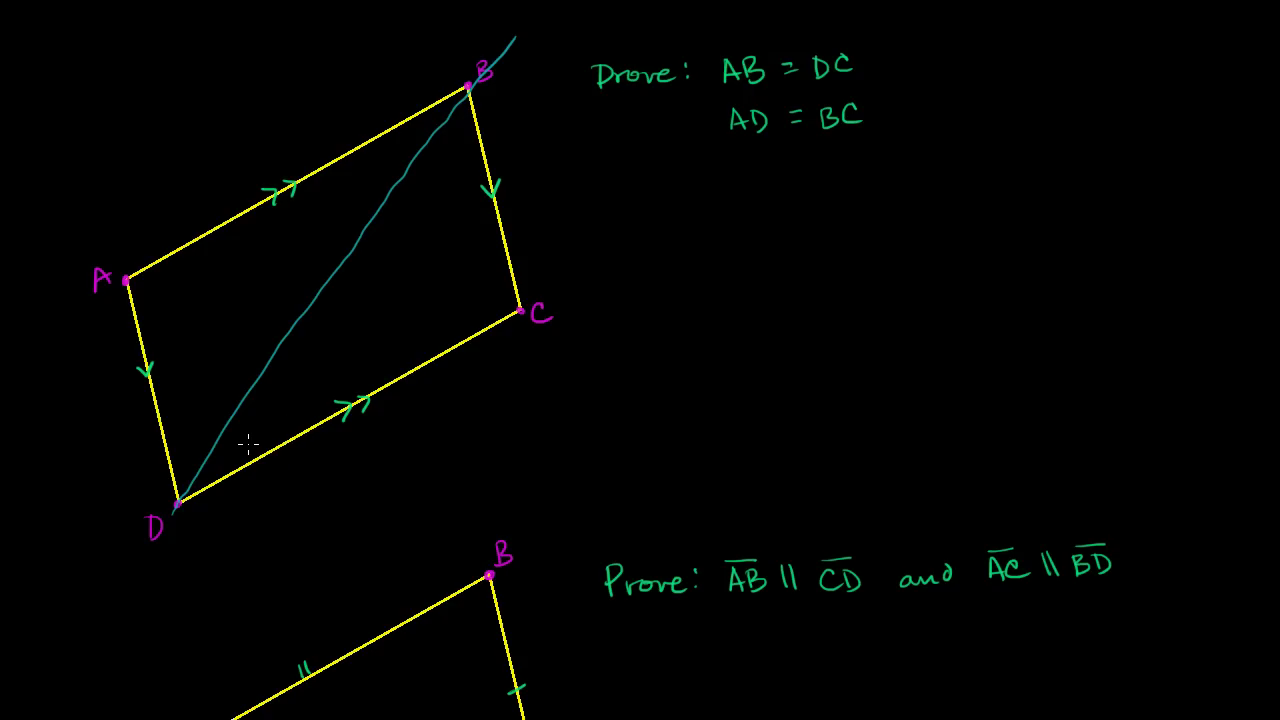 B
Prove: AB = DC
AD = BC
A
C
D
B
Prove: A̅B̅ || C̅D̅ and A̅C̅ || B̅D̅